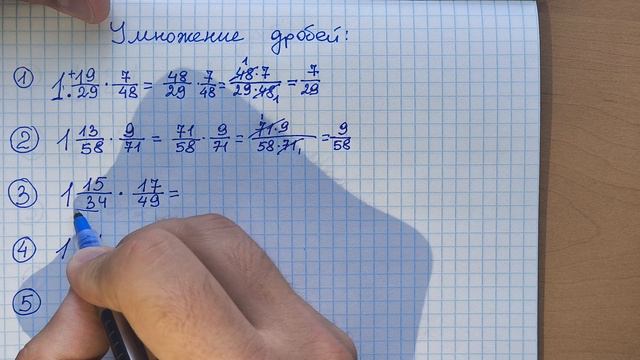 Умножение дробей:
① 1 19/29 · 7/48 = 48/29 · 7/48 = 48·7/29·48 = 7/29
② 1 13/58 · 9/71 = 71/58 · 9/71 = 71·9/58·71 = 9/58
③ 1 15/34 · 17/49 =
④ 1
⑤